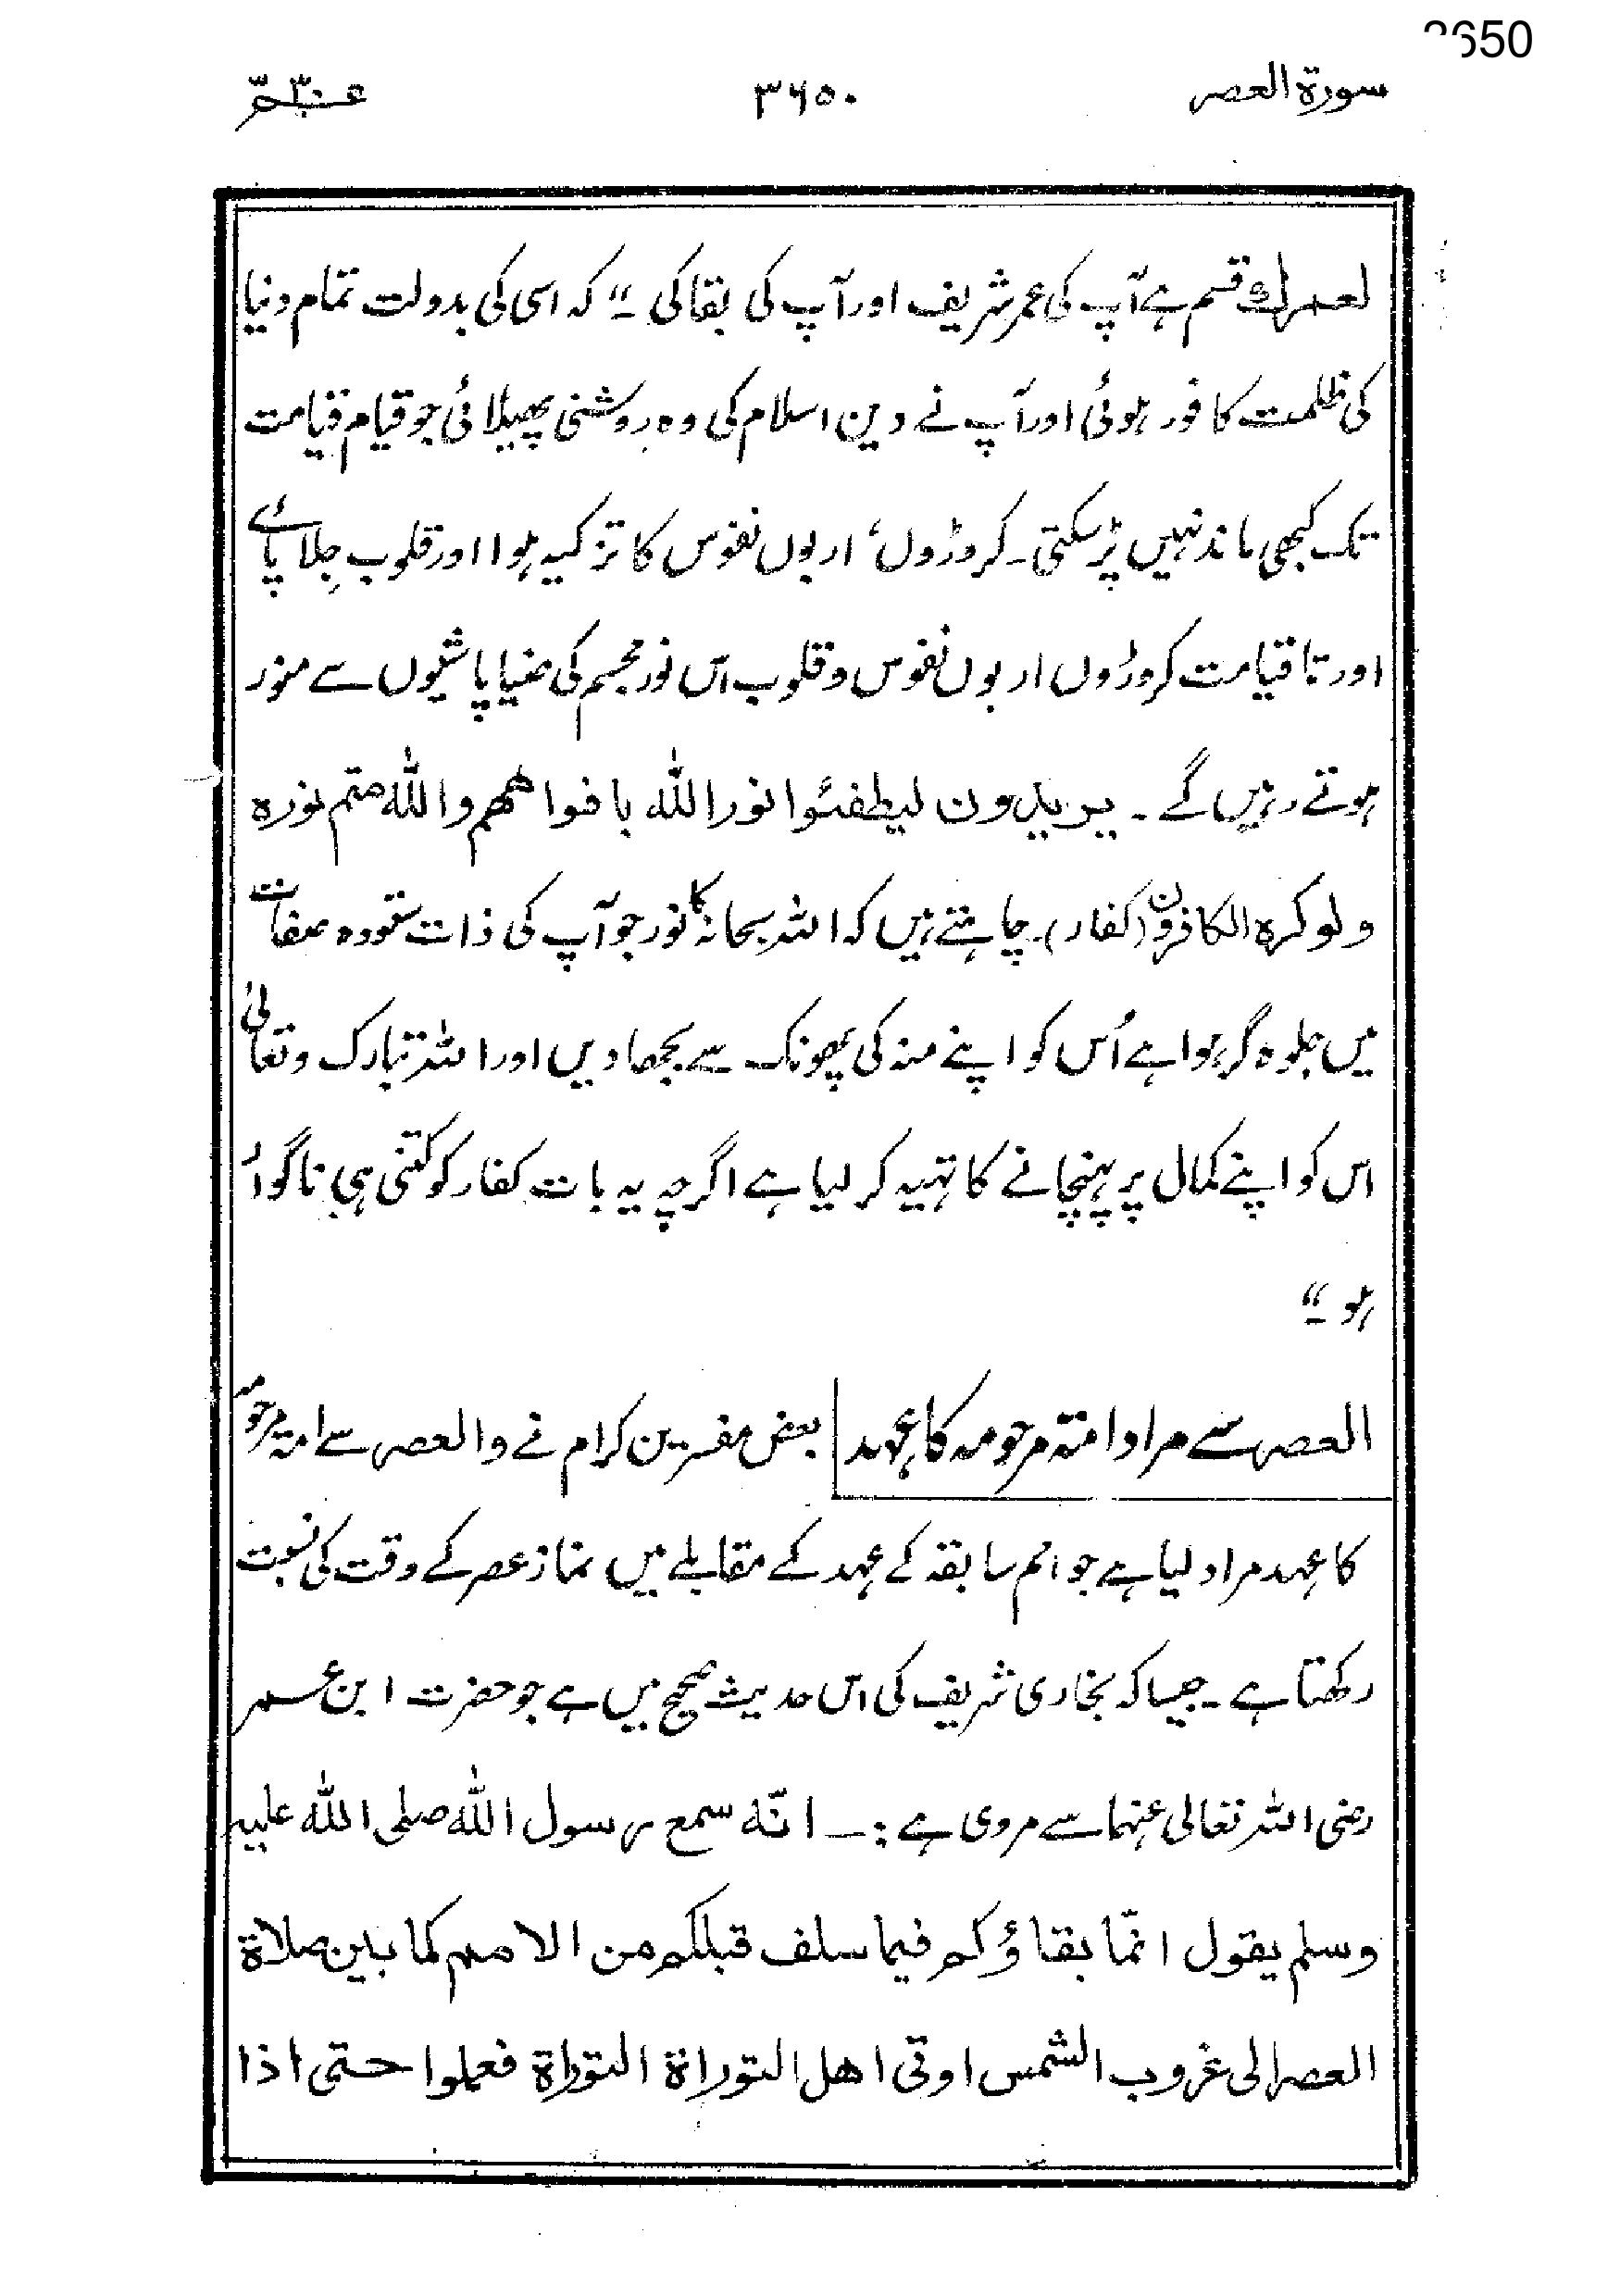 3650
سورۃ العصر ۳۶۵۰ عمّ ۳۰
لعمرك قسم ہے آپ کی عمر شریف اور آپ کی بقا کی ۔“ کہ اسی کی بدولت تمام دنیا
کی ظلمت کافور ہوئی اور آپ نے دین اسلام کی وہ روشنی پھیلائی جو قیام قیامت
تک کبھی ماند نہیں پڑ سکتی ۔ کروڑوں، اربوں نفوس کا تزکیہ ہوا اور قلوب جِلا پائے
اور تا قیامت کروڑوں اربوں نفوس و قلوب اس نور مجسم کی ضیا پاشیوں سے منور
ہوتے رہیں گے ۔ یریدون لیطفئوا نور اللہ بافواھھم واللہ متم نورہ
ولو کرہ الکافرون (کفار) چاہتے ہیں کہ اللہ سبحانہٗ کا نور جو آپ کی ذات ستودہ صفات
میں جلوہ گر ہوا ہے اُس کو اپنے منہ کی پھونک سے بجھا دیں اور اللہ تبارک وتعالیٰ
اس کو اپنے کمال پر پہنچانے کا تہیہ کر لیا ہے اگرچہ یہ بات کفار کو کتنی ہی ناگوار
ہو ۔“
العصر سے مراد امتہ مرحومہ کا عہد بعض مفسرین کرام نے والعصر سے امتہ مرحومہ
کا عہد مراد لیا ہے جو امم سابقہ کے عہد کے مقابلے میں نماز عصر کے وقت کی نسبت
رکھتا ہے ۔ جیسا کہ بخاری شریف کی اس حدیث صحیح میں ہے جو حضرت ابن عمر
رضی اللہ تعالی عنہما سے مروی ہے :۔ انّہ سمع رسول اللہ صلی اللہ علیہ
وسلم یقول انّما بقاؤکم فیما سلف قبلکم من الامم کما بین صلاة
العصر الی غروب الشمس اوتی اھل التوراة التوراة فعملوا حتی اذا